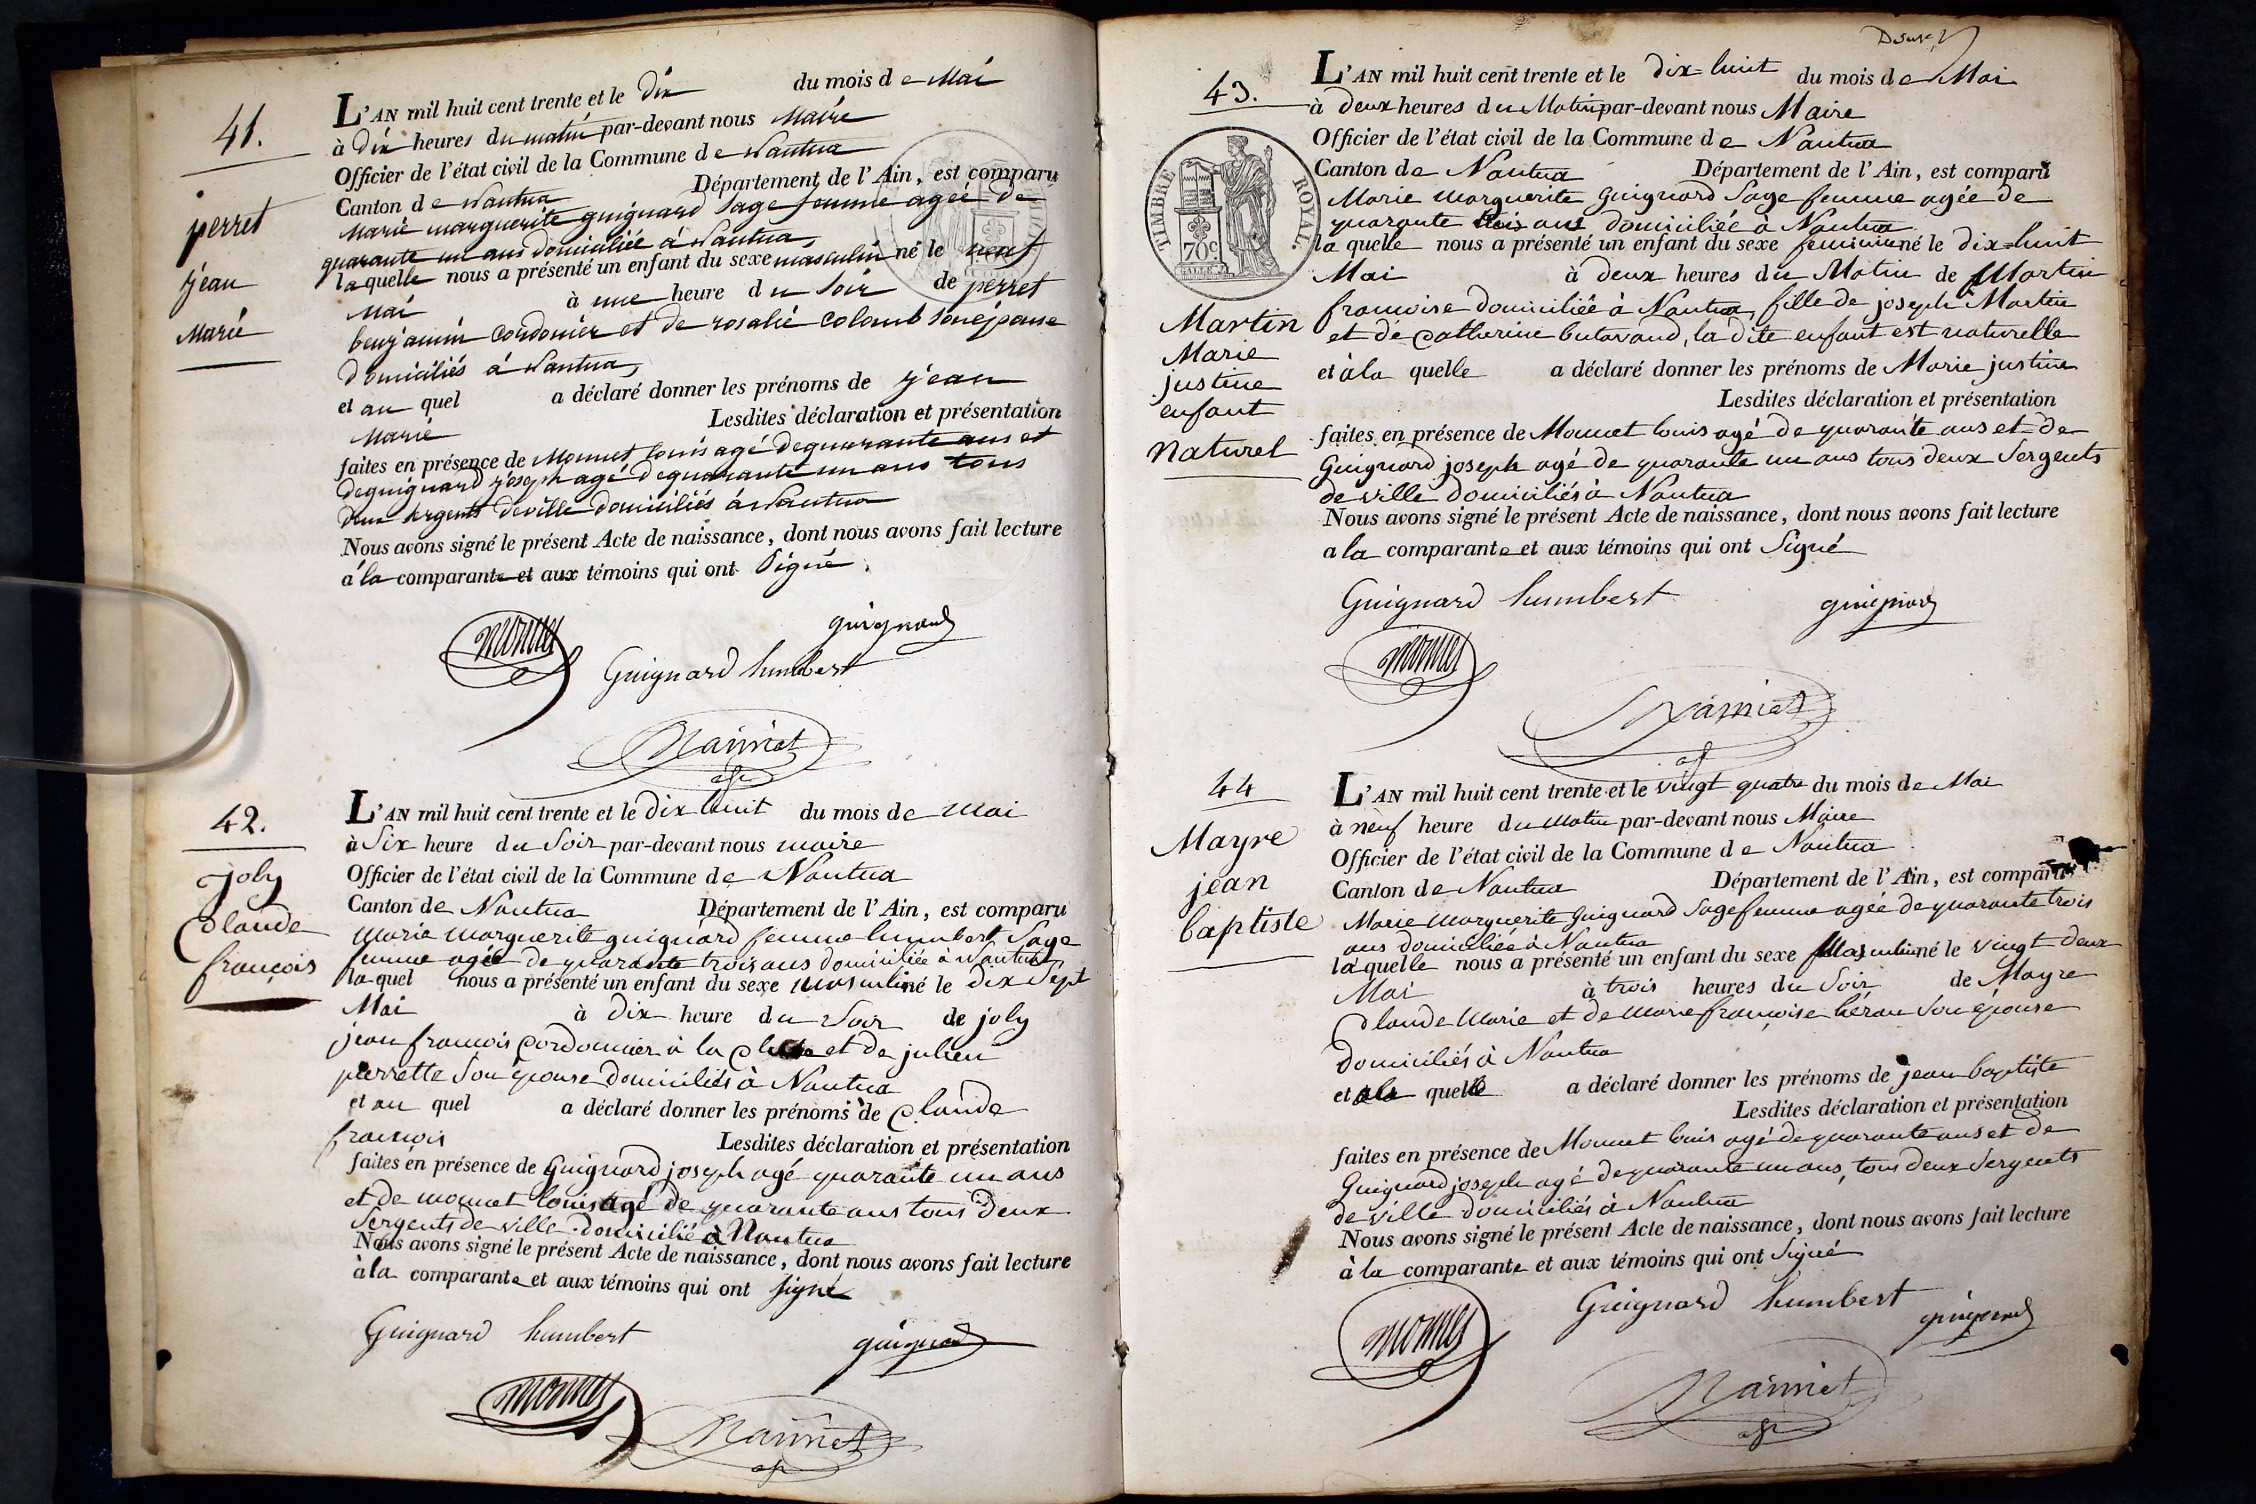 41.
perret
jean
Marie
L'AN mil huit cent trente et le dix du mois de Mai
à dix heures du matin par-devant nous Maire
Officier de l'état civil de la Commune de Nantua
Canton de Nantua Département de l'Ain, est comparu
Marie marguerite guignard Sage femme agée de
quarante un ans domiciliée à Nantua,
laquelle nous a présenté un enfant du sexe masculin né le neuf
Mai à une heure du Soir de perret
benjamin Cordonier et de rosalie Colomb Son épouse
domiciliés à Nantua,
et au quel a déclaré donner les prénoms de jean
Marie Lesdites déclaration et présentation
faites en présence de Monnet louis agé de quarante ans et
de guignard joseph agé de quarante un ans tous
deux sergents de ville domiciliés à Nantua
Nous avons signé le présent Acte de naissance, dont nous avons fait lecture
à la comparante et aux témoins qui ont Signé.
monnet
guignard
Guignard humbert
42.
joly
Claude
françois
L'AN mil huit cent trente et le dix huit du mois de Mai
à Six heure du Soir par-devant nous maire
Officier de l'état civil de la Commune de Nantua
Canton de Nantua Département de l'Ain, est comparu
Marie Marguerite guignard femme humbert Sage
femme agée de quarante trois ans domiciliée à Nantua
la quel nous a présenté un enfant du sexe Masculin né le dix Sept
Mai à dix heure du Soir de joly
jean francois Cordonnier à la et de julien
pierrette Son épouse domiciliés à Nantua
et au quel a déclaré donner les prénoms de Claude
francois Lesdites déclaration et présentation
faites en présence de Guignard joseph agé quarante un ans
et de monnet louis agé de quarante ans tous deux
Sergents de ville domicilié à Nantua
Nous avons signé le présent Acte de naissance, dont nous avons fait lecture
à la comparante et aux témoins qui ont signé
Guignard humbert
guignard
monnet
43.
TIMBRE ROYAL.
70c.
Martin
Marie
justine
enfant
Naturel
L'AN mil huit cent trente et le dix huit du mois de Mai
à deux heures du Matin par-devant nous Maire
Officier de l'état civil de la Commune de Nantua
Canton de Nantua Département de l'Ain, est comparu
Marie Marguerite Guignard Sage femme agée de
quarante trois ans domiciliée à Nantua
la quelle nous a présenté un enfant du sexe feminin né le dix=huit
Mai à deux heures du Matin de Martin
francoise domiciliée à Nantua, fille de joseph Martin
et de Catherine butavand, la dite enfant est naturelle
et à la quelle a déclaré donner les prénoms de Marie justine
Lesdites déclaration et présentation
faites en présence de Monnet louis agé de quarante ans et de
Guignard joseph agé de quarante un ans tous deux Sergents
de ville domiciliés à Nantua
Nous avons signé le présent Acte de naissance, dont nous avons fait lecture
a la comparante et aux témoins qui ont Signé
Guignard humbert
guignard
monnet
44
Mayre
jean
baptiste
L'AN mil huit cent trente et le vingt quatre du mois de Mai
à neuf heure du Matin par-devant nous Maire
Officier de l'état civil de la Commune de Nantua
Canton de Nantua Département de l'Ain, est comparu
Marie Marguerite Guignard Sage femme agée de quarante trois
ans domiciliée à Nantua
la quelle nous a présenté un enfant du sexe Masculin né le vingt deux
Mai à trois heures du Soir de Mayre
Claude Marie et de Marie françoise héran Son épouse
domiciliés à Nantua
et a la quelle a déclaré donner les prénoms de jean baptiste
Lesdites déclaration et présentation
faites en présence de Monnet louis agé de quarante ans et de
Guignard joseph agé de quarante un ans, tous deux Sergents
de ville domiciliés à Nantua
Nous avons signé le présent Acte de naissance, dont nous avons fait lecture
à la comparante et aux témoins qui ont Signé
Guignard humbert
guignard
monnet